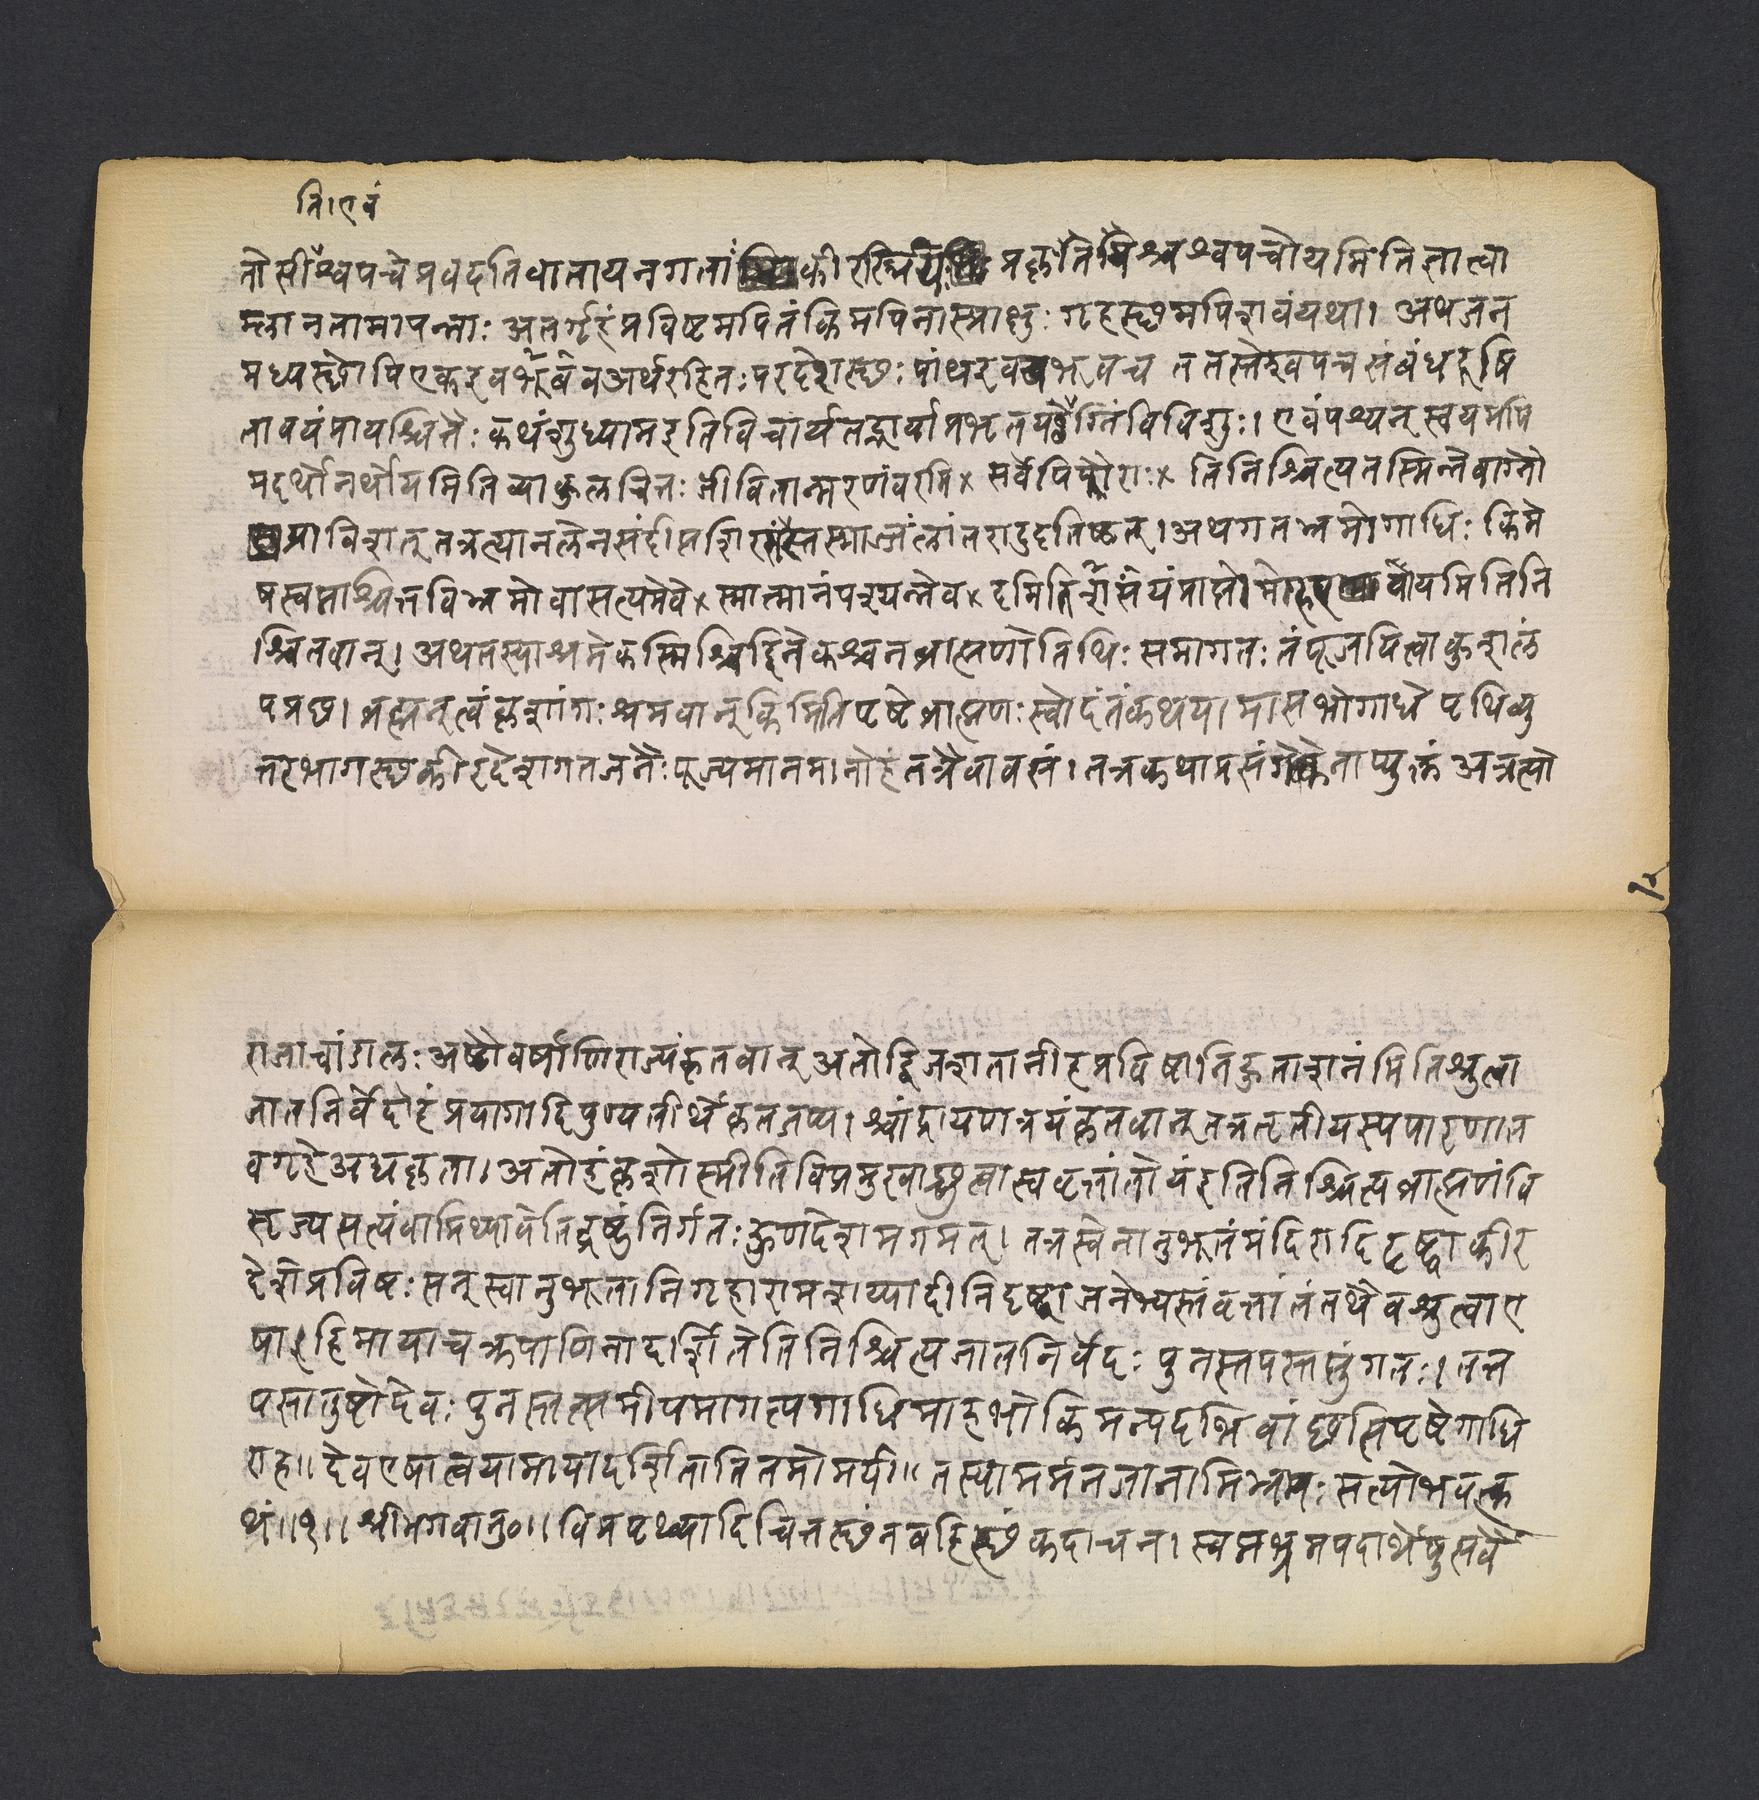 ति।एवं
तोसीँश्वपचेप्रवदतिवातायनगतां कीरस्त्रिय प्रकृतिभिश्चश्वपचोयमितिज्ञात्वा
म्लानतामापन्नाः अंतर्गृहंप्रविष्टमपितंकिमपिनास्प्राक्षुः गृहस्थमपिशवंयथा। अथजन
मध्यस्थोपिएकइवभूर्बभूवअर्थरहितः परदेशस्थः पांथइवबभूवच ततस्तेश्वपचसंबंधदूषि
तावयंप्रायश्चित्तैः कथंशुध्यामइतिविचार्यतद्भार्याप्रभृतयश्चैग्निंविविशुः। एवंपश्यन्स्वयमपि
मदर्थोनर्थोयमितिव्याकुलचित्तः जीवितान्मरणंवरमि× सर्वेपिपौराः× तिनिश्चित्यतस्मिन्नेवाग्नौ
प्राविशत् तत्रत्यानलेनसंदीप्तशिरस्तस्माज्जलांतरादुदतिष्ठत्। अथगतभ्रमोगाधिः किमे
षस्वप्नाश्चित्तविभ्रमोवासत्यमेवे×स्मात्मानंपश्यन्नेव×दमितिसंशयंप्राप्तो मोहएवायमितिनि
श्चितवान्। अथतस्याश्रमेकस्मिंश्चिद्दिनेकश्चनब्राह्मणोतिथिः समागतः तंपूजयित्वाकुशलं
पप्रछ। ब्रह्मन्त्वंकृशांगः श्रमवान्किमितिपृष्टेब्राह्मणः स्वोदंतंकथया।मासभोगाधे पृथिव्यु
त्तरभागस्थकीरदेशागतजनैः पूज्यमानमानोहंतत्रैवावसं। तत्रकथाप्रसंगेकेनाप्युक्तं अत्रत्यो
१२
राजाचांडालः अष्टौवर्षाणिराज्यंकृतवान् अतोद्विजशतानीहप्रविष्टानिहुताशनंमितिश्रुत्वा
जातनिर्वेदोहंप्रयागादिपुण्यतीर्थेकृततप्य।श्चांद्रायणत्रयंकृतवान् तत्रतृतीयस्यपारणात
वगृहेअद्यकृता। अतोहंकृशोस्मीतिविप्रमुखाछ्रुत्वास्ववृत्तांतोयंइतिनिश्चित्यब्राह्मणंवि
सृज्यसत्यंवामिथ्यावेतिद्रष्टुंनिर्गतः हूणदेशमगमत्। तत्रस्वेनानुभूतंमंदिरादिदृष्ट्वाकीर
देशंप्रविष्टः सन्स्वानुभूतानिगृहारामशय्यादीनिदृष्ट्वाजनेभ्यस्तंवृत्तांतंतथैवश्रुत्वाए
षाइहिमायाचक्रपाणिनादर्शितेतिनिश्चित्यजातनिर्वेदः पुनस्तपस्तप्तुंगतः। तत्त
पसातुष्टोदेवः पुनस्तत्समीपमागत्यगाधिमाहभोकिमन्यदभिवांछसिपृष्टेगाधि
राह॥ देवएषात्वयामायादर्शितातितमोमयी॥ तस्यामर्मनजानामिभ्रमः सत्योभवत्क
थं॥१॥ श्रीभगवानु०॥ विप्रपृथ्व्यादिचित्तस्थंनबहिस्थं कदाचन। स्वप्नभ्रमपदार्थेषुसर्वै